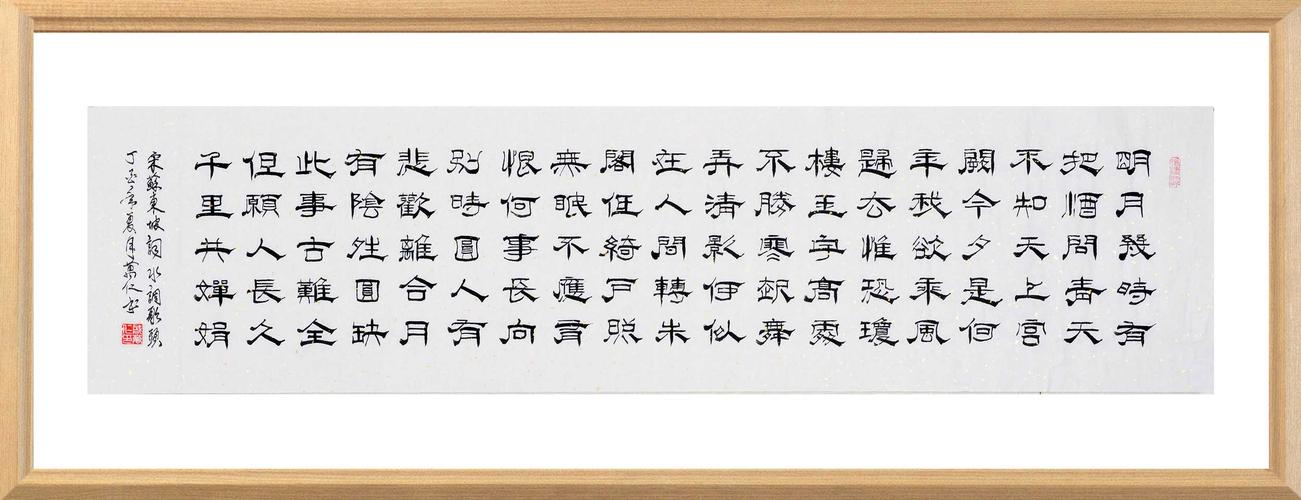 明月幾時有
把酒問青天
不知天上宮
闕今夕是何
年我欲乘風
歸去惟恐瓊
樓玉宇高處
不勝寒起舞
弄清影何似
在人間轉朱
閣低綺戶照
無眠不應有
恨何事長向
別時圓人有
悲歡離合月
有陰晴圓缺
此事古難全
但願人長久
千里共嬋娟
宋蘇東坡詞水調歌頭
丁亥年夏月萬仁書